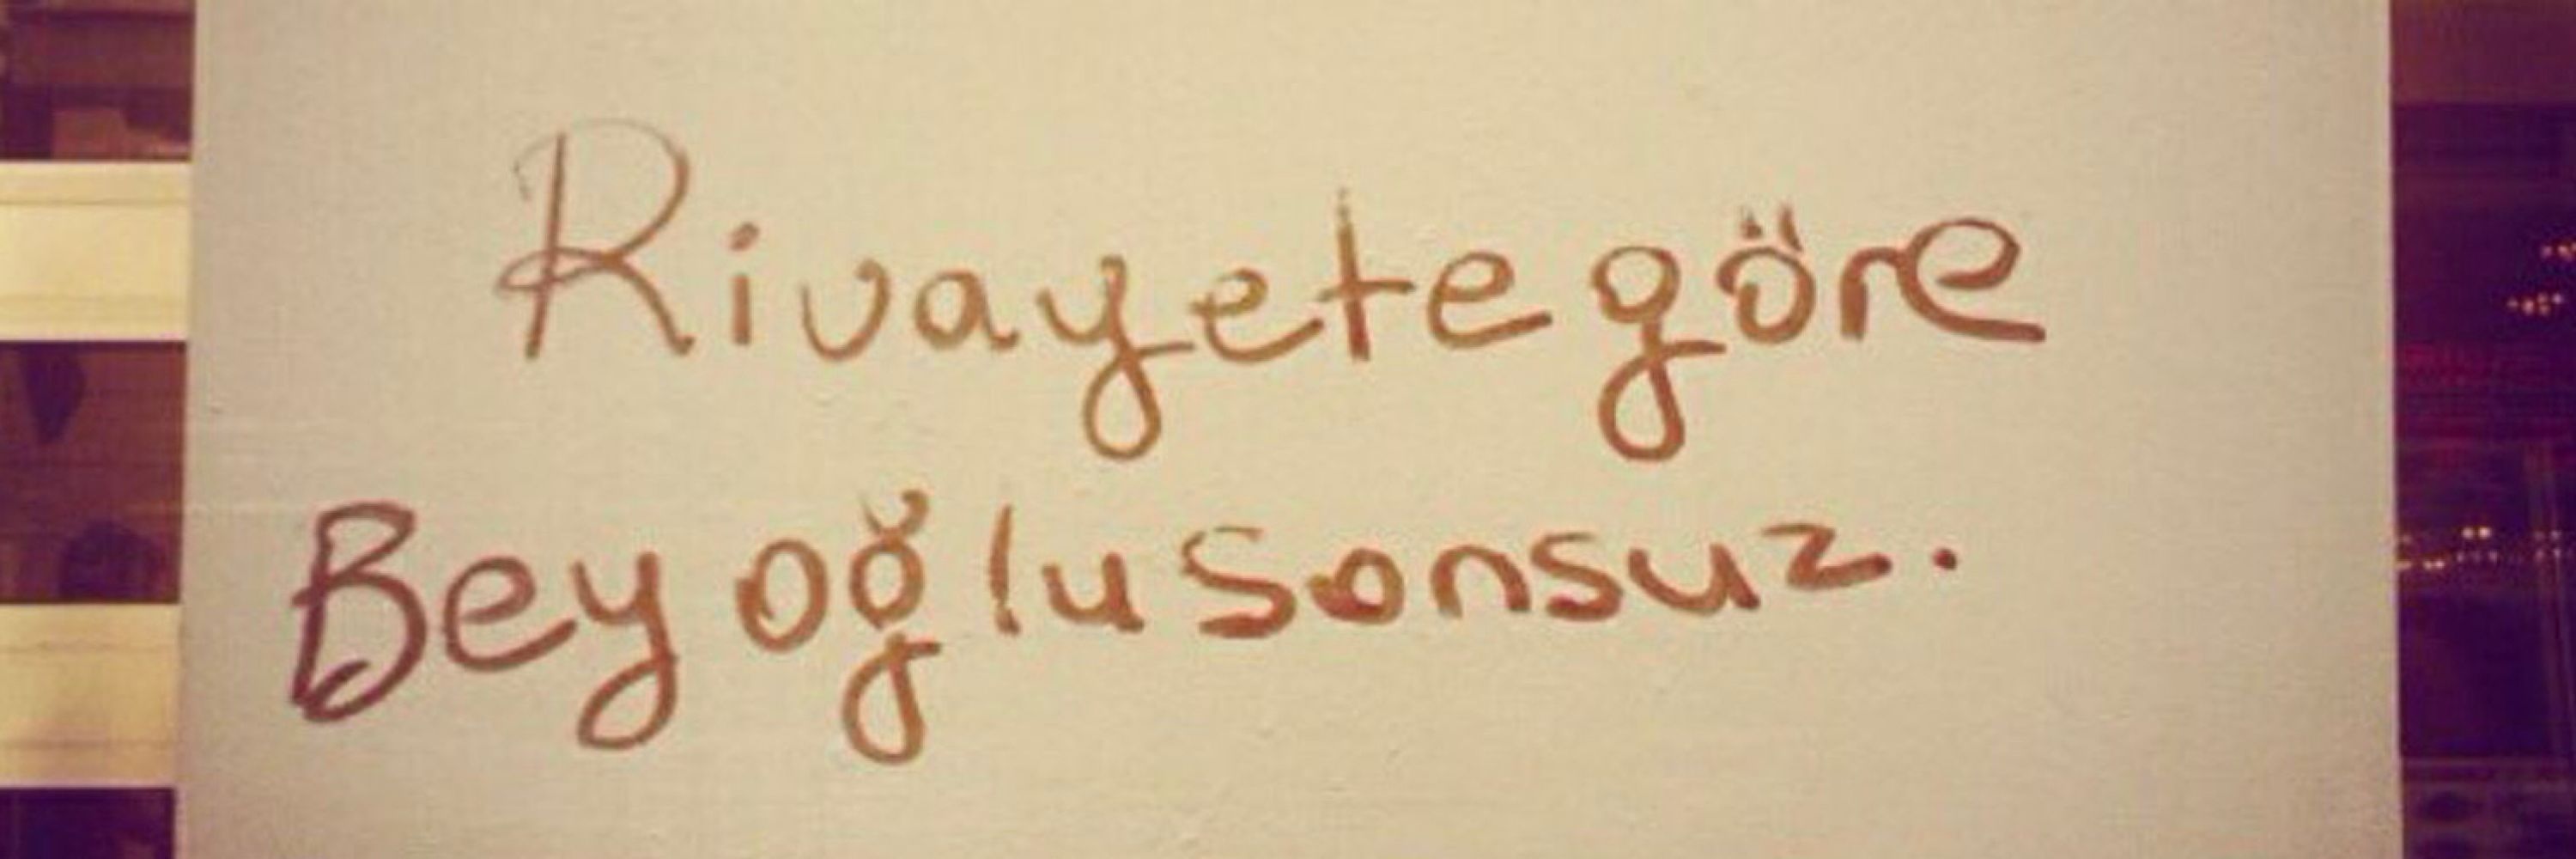 Rivayete göre
Beyoğlu sonsuz.